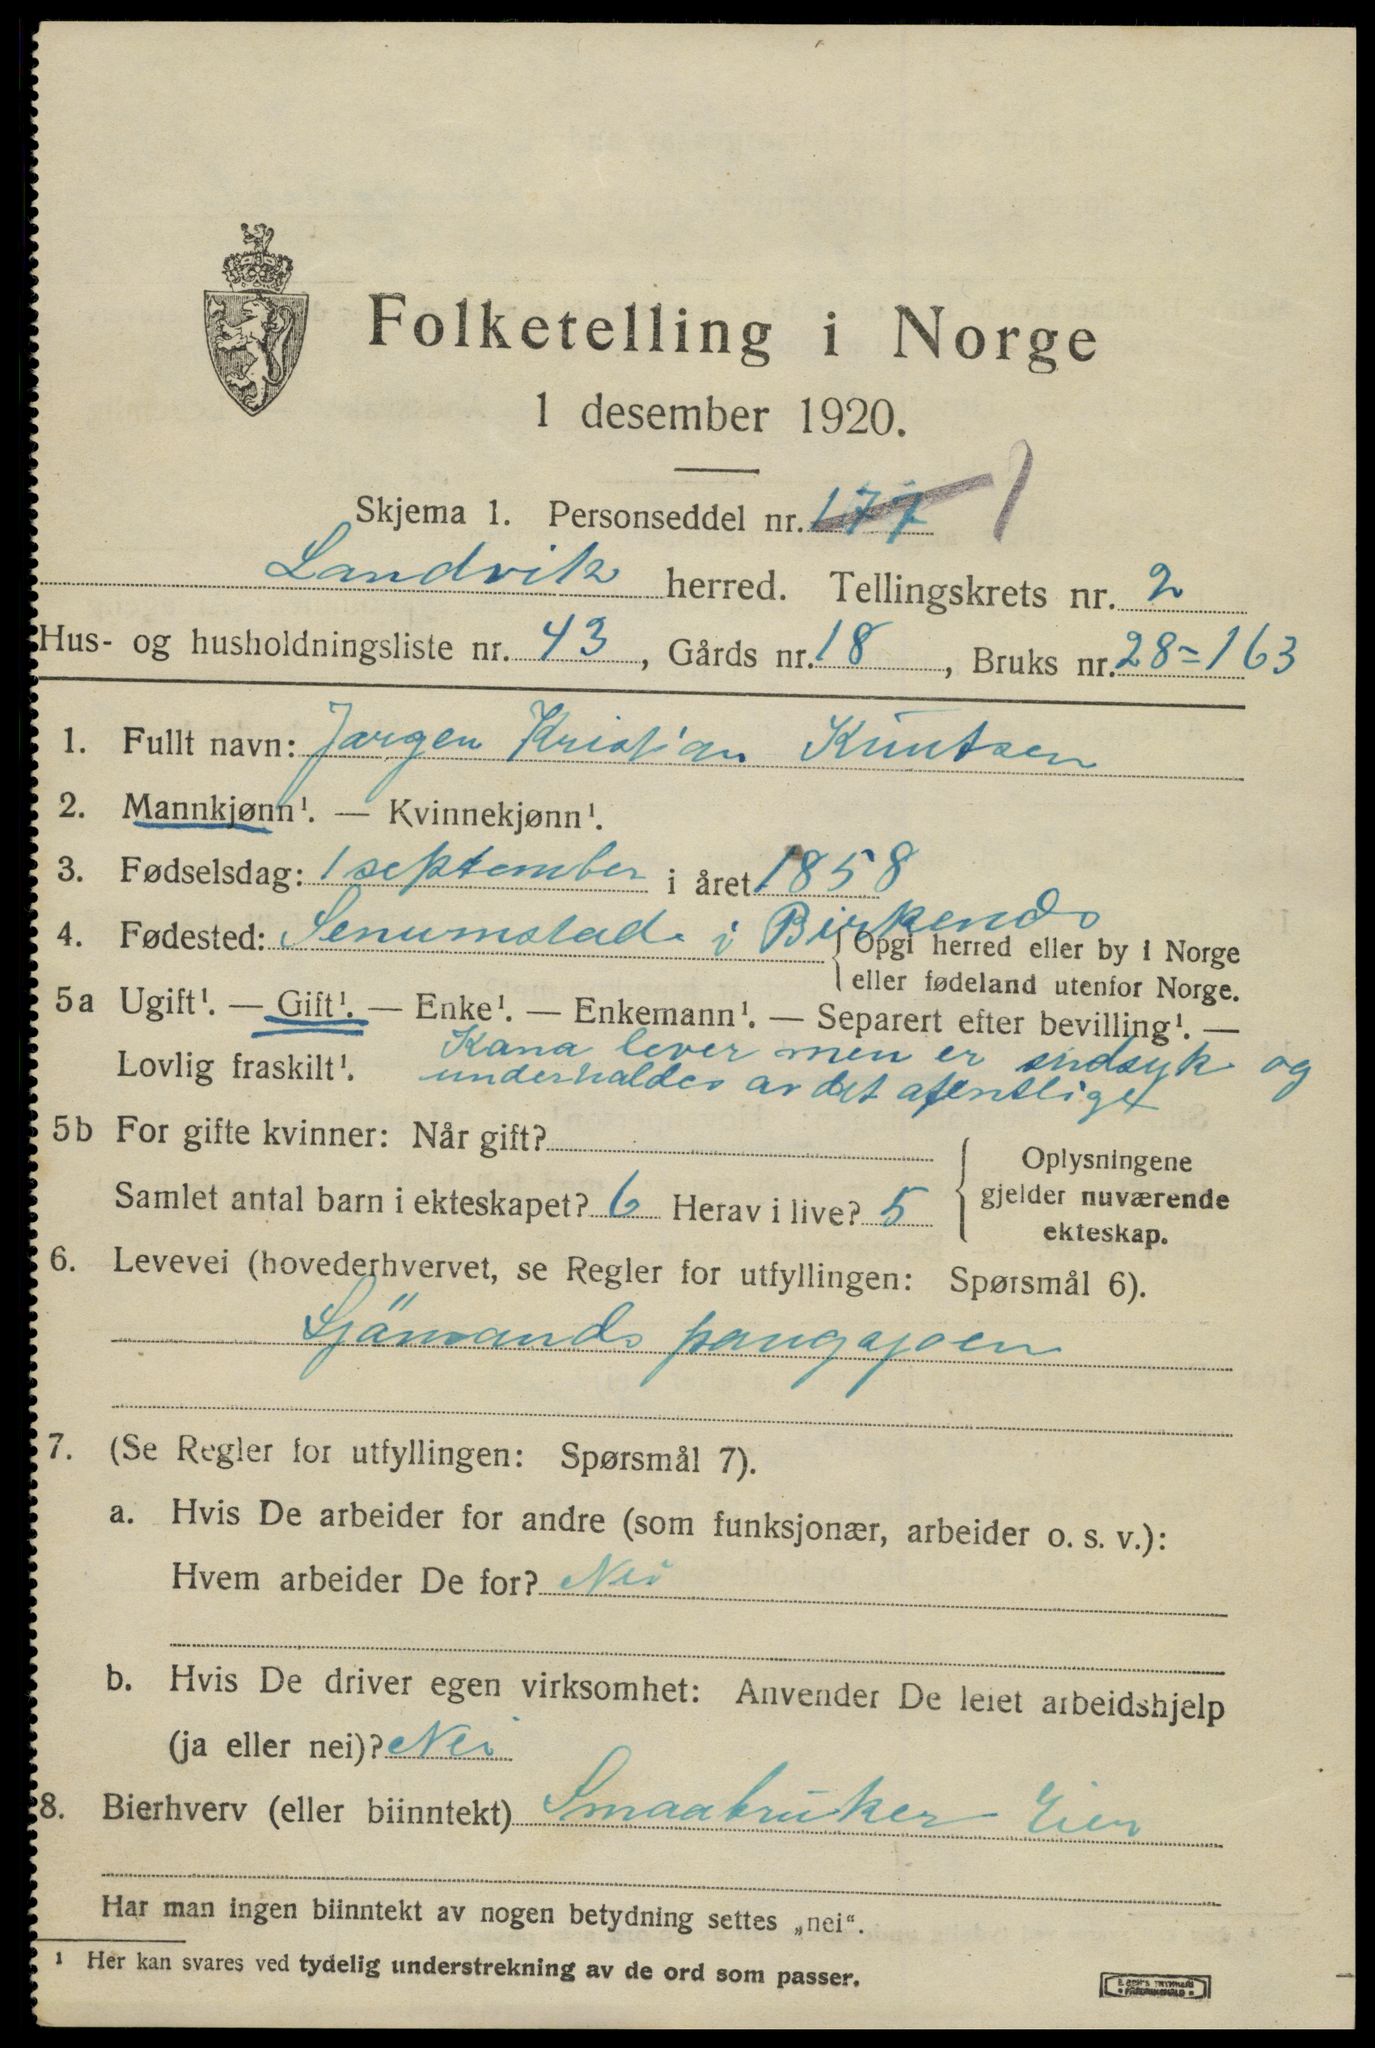 Folketelling i Norge
1 desember 1920.
Skjema 1. Personseddel nr. 177
Landvik herred. Tellingskrets nr. 2
Hus- og husholdningsliste nr. 43, Gårds nr. 18, Bruks nr. 28=163
1. Fullt navn: Jørgen Kristian Knutsen
2. Mannkjønn¹. — Kvinnekjønn¹.
3. Fødselsdag: 1 september i året 1858
4. Fødested: Senumstad i Birkenes
{Opgi herred eller by i Norge
eller fødeland utenfor Norge.
5a Ugift¹. — Gift¹. — Enke¹. — Enkemann¹. — Separert efter bevilling¹. —
Lovlig fraskilt¹. Kona lever men er sindsyk og
underholdes av det ofentlige
5b For gifte kvinner: Når gift?
Samlet antal barn i ekteskapet? 6 Herav i live? 5
{Oplysningene
gjelder nuværende
ekteskap.
6. Levevei (hovederhvervet, se Regler for utfyllingen: Spørsmål 6).
Sjömands
7. (Se Regler for utfyllingen: Spørsmål 7).
a. Hvis De arbeider for andre (som funksjonær, arbeider o. s. v.):
Hvem arbeider De for? Nei
b. Hvis De driver egen virksomhet: Anvender De leiet arbeidshjelp
(ja eller nei)? Nei
8. Bierhverv (eller biinntekt) Smaabruker Eier
Har man ingen biinntekt av nogen betydning settes „nei“.
¹ Her kan svares ved tydelig understrekning av de ord som passer.